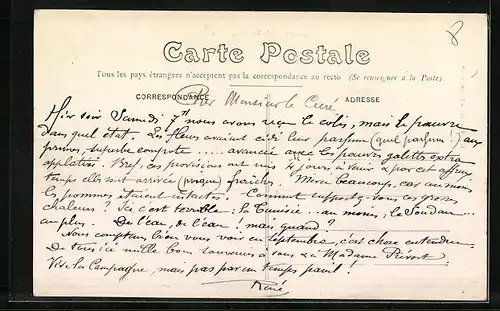 8
Carte Postale
Tous les pays étrangers n'acceptent pas la correspondance au recto (Se renseigner à la Poste)
CORRESPONDANCE ADRESSE
Cher Monsieur le Curé
Hier soir Samedi 7h nous avons reçu le colis, mais le pauvre
dans quel état. Les fleurs avaient cédé leur parfum (quel parfum!) aux
prunes, superbe compote ..... avancée avec les pauvres galettes extra
applaties. Bref, ces provisions ont mis 4 jours à venir & par cet affreux
temps elles sont arrivées (presque) fraîches. Merci beaucoup, car au moins
les pommes étaient intactes. Comment supportez-vous ces grosses
chaleurs? Ici c'est terrible: la Tunisie ... au moins, le Soudan ...
au plus. De l'eau, de l'eau! mais quand?
Nous comptons bien vous voir en septembre, c'est chose entendue.
De tous ici mille bons souvenirs à vous & à Madame Prévost.
Vive la Campagne, mais pas par un temps pareil!
René